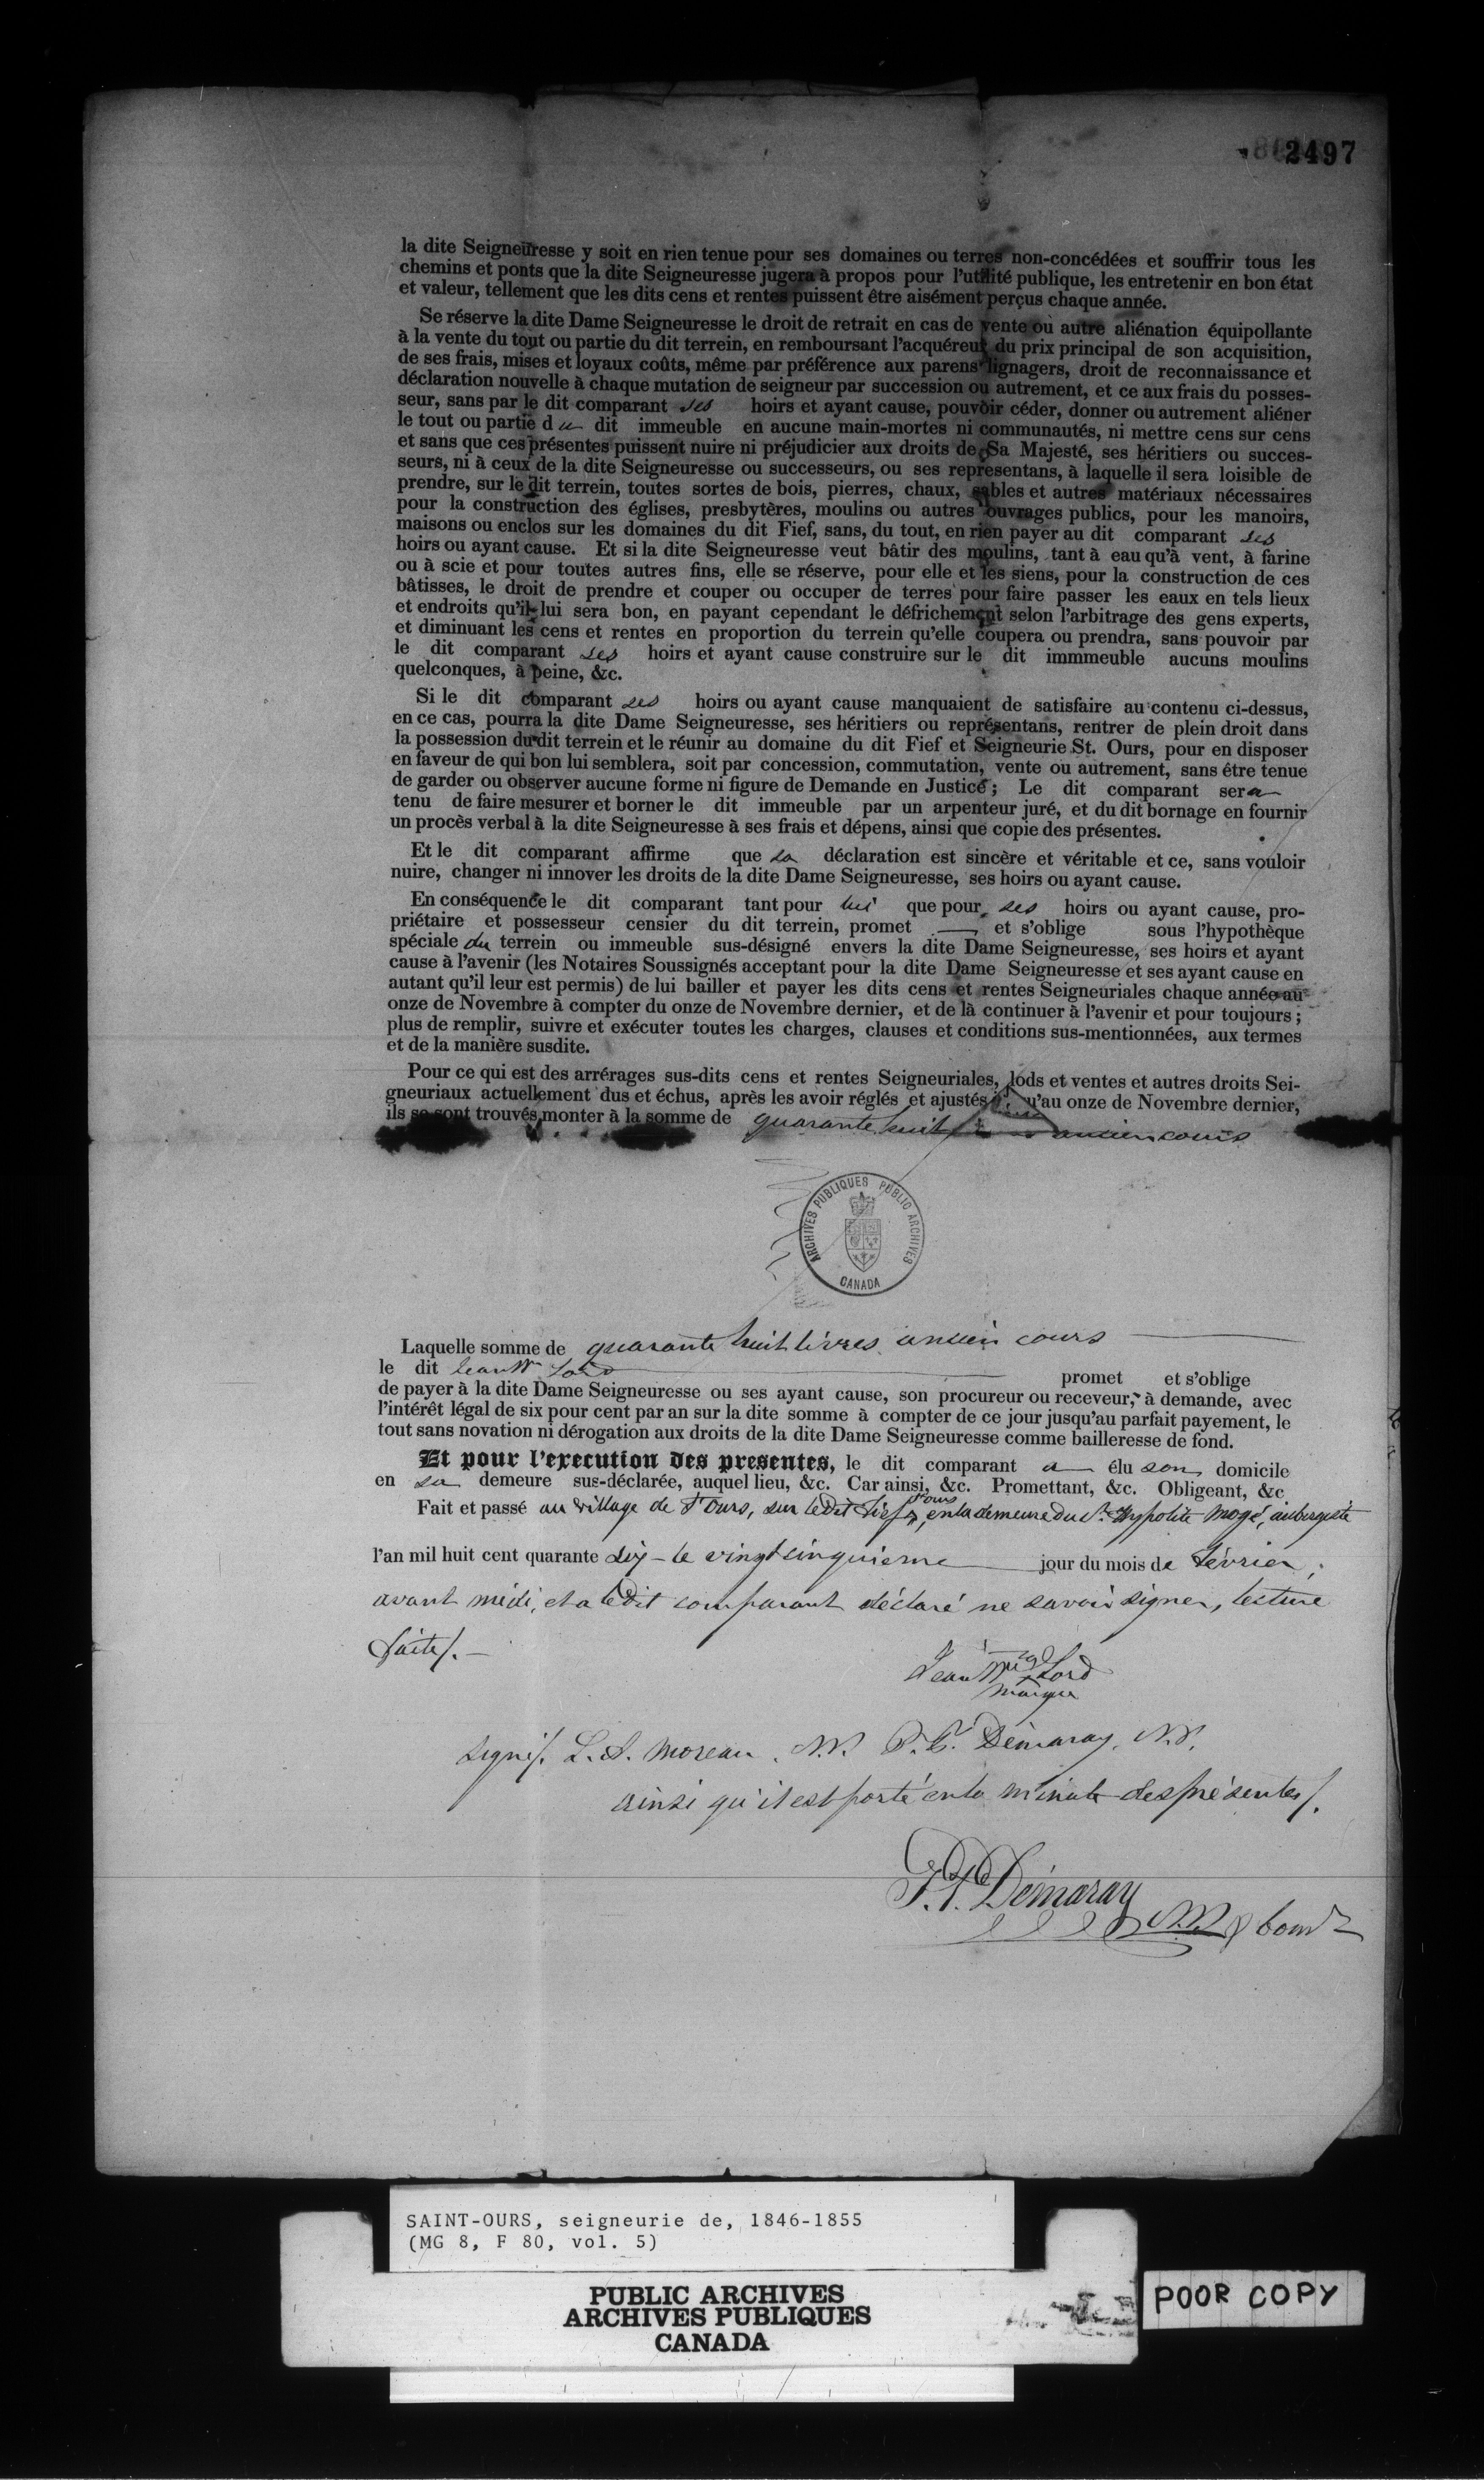 2497
la dite Seigneuresse y soit en rien tenue pour ses domaines ou terres non-concédées et souffrir tous les
chemins et ponts que la dite Seigneuresse jugera à propos pour l'utilité publique, les entretenir en bon état
et valeur, tellement que les dits cens et rentes puissent être aisément perçus chaque année.
Se réserve la dite Dame Seigneuresse le droit de retrait en cas de vente ou autre aliénation équipollante
à la vente du tout ou partie du dit terrein, en remboursant l'acquéreur du prix principal de son acquisition,
de ses frais, mises et loyaux coûts, même par préférence aux parens lignagers, droit de reconnaissance et
déclaration nouvelle à chaque mutation de seigneur par succession ou autrement, et ce aux frais du posses-
seur, sans par le dit comparant ses hoirs et ayant cause, pouvoir céder, donner ou autrement aliéner
le tout ou partie du dit immeuble en aucune main-mortes ni communautés, ni mettre cens sur cens
et sans que ces présentes puissent nuire ni préjudicier aux droits de Sa Majesté, ses héritiers ou succes-
seurs, ni à ceux de la dite Seigneuresse ou successeurs, ou ses représentans, à laquelle il sera loisible de
prendre, sur le dit terrein, toutes sortes de bois, pierres, chaux, sables et autres matériaux nécessaires
pour la construction des églises, presbytères, moulins ou autres ouvrages publics, pour les manoirs,
maisons ou enclos sur les domaines du dit Fief, sans, du tout, en rien payer au dit comparant ses
hoirs ou ayant cause. Et si la dite Seigneuresse veut bâtir des moulins, tant à eau qu'à vent, à farine
ou à scie et pour toutes autres fins, elle se réserve, pour elle et les siens, pour la construction de ces
bâtisses, le droit de prendre et couper ou occuper de terres pour faire passer les eaux en tels lieux
et endroits qu'il lui sera bon, en payant cependant le défrichement selon l'arbitrage des gens experts,
et diminuant les cens et rentes en proportion du terrein qu'elle coupera ou prendra, sans pouvoir par
le dit comparant ses hoirs et ayant cause construire sur le dit immmeuble aucuns moulins
quelconques, à peine, &c.
Si le dit comparant ses hoirs ou ayant cause manquaient de satisfaire au contenu ci-dessus,
en ce cas, pourra la dite Dame Seigneuresse, ses héritiers ou représentans, rentrer de plein droit dans
la possession du dit terrein et le réunir au domaine du dit Fief et Seigneurie St. Ours, pour en disposer
en faveur de qui bon lui semblera, soit par concession, commutation, vente ou autrement, sans être tenue
de garder ou observer aucune forme ni figure de Demande en Justice; Le dit comparant sera
tenu de faire mesurer et borner le dit immeuble par un arpenteur juré, et du dit bornage en fournir
un procès verbal à la dite Seigneuresse à ses frais et dépens, ainsi que copie des présentes.
Et le dit comparant affirme que sa déclaration est sincère et véritable et ce, sans vouloir
nuire, changer ni innover les droits de la dite Dame Seigneuresse, ses hoirs ou ayant cause.
En conséquence le dit comparant tant pour lui que pour ses hoirs ou ayant cause, pro-
priétaire et possesseur censier du dit terrein, promet — et s'oblige sous l'hypothèque
spéciale du terrein ou immeuble sus-désigné envers la dite Dame Seigneuresse, ses hoirs et ayant
cause à l'avenir (les Notaires Soussignés acceptant pour la dite Dame Seigneuresse et ses ayant cause en
autant qu'il leur est permis) de lui bailler et payer les dits cens et rentes Seigneuriales chaque année au
onze de Novembre à compter du onze de Novembre dernier, et de là continuer à l'avenir et pour toujours;
plus de remplir, suivre et exécuter toutes les charges, clauses et conditions sus-mentionnées, aux termes
et de la manière susdite.
Pour ce qui est des arrérages sus-dits cens et rentes Seigneuriales, lods et ventes et autres droits Sei-
gneuriaux actuellement dus et échus, après les avoir réglés et ajustés qu'au onze de Novembre dernier,
ils se sont trouvés monter à la somme de quarante huit ancien cours
ARCHIVES PUBLIQUES PUBLIC ARCHIVES
CANADA
Laquelle somme de quarante huit livres ancien cours
le dit Jean Mie Lord promet et s'oblige
de payer à la dite Dame Seigneuresse ou ses ayant cause, son procureur ou receveur, à demande, avec
l'intérêt légal de six pour cent par an sur la dite somme à compter de ce jour jusqu'au parfait payement, le
tout sans novation ni dérogation aux droits de la dite Dame Seigneuresse comme bailleresse de fond.
Et pour l'execution des presentes, le dit comparant a élu son domicile
en sa demeure sus-déclarée, auquel lieu, &c. Car ainsi, &c. Promettant, &c. Obligeant, &c
Fait et passé au village de St Ours, sur ledit fief St Ours, en la demeure du Sr. Hypolite Mogé, aubergiste
l'an mil huit cent quarante six - le vingt cinquieme jour du mois de février,
avant midi, et a ledit comparant déclaré ne savoir signer, lecture
faite/. —
Jean Lord
marque
signé/. L. A. Moreau. N.P. P. P. Démaray. N.P.
ainsi qu'il est porté en la minute des présentes/.
P. P. Démaray
N.P.
SAINT-OURS, seigneurie de, 1846-1855
(MG 8, F 80, vol. 5)
PUBLIC ARCHIVES
ARCHIVES PUBLIQUES
CANADA
POOR COPY